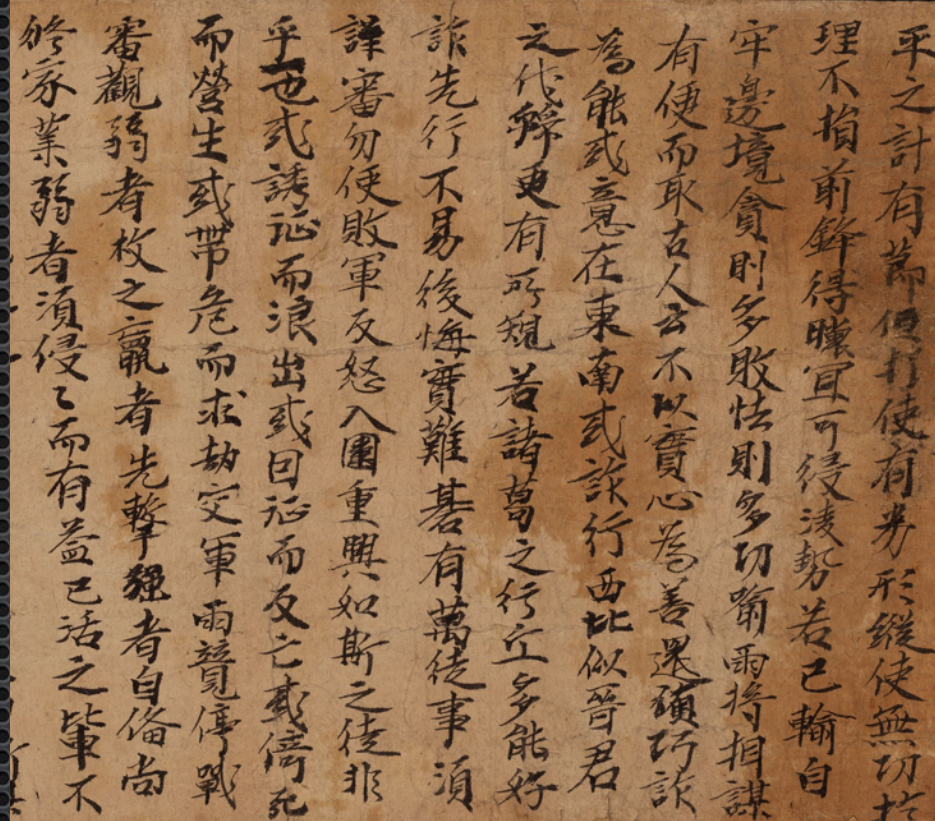 平之計有萹但打使有劣形縱使無功於
理不損前鋒得暖冝可侵淩勢若已輸自
牢邊境貪則多敗怯則多功喻兩將相謀
有便而取古人云不以實心為善還須巧詐
為能或意在東南或詐行西北似晉君
之伐虢更有所規若諸葛之行丘多能好
詐先行不易後悔實難碁有萬徒事須
謹審勿使敗軍反怒入圍重興如斯之徒非
乎一也或誘征而浪出或因征而反亡或倚死
而營生或帶危而求劫交軍兩競停戰
審觀弱者枚之羸者先擊强者自俻尚
修家業弱者須侵〻而有益已活之輩不